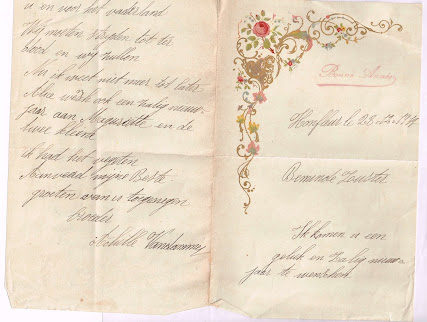 u en voor het vaderland
Wij moeten strijden tot ter
dood en wij zullen
Nu ik weet niet meer tot later
Alea wensk ook een zalig nieuw
jaar aan Marguerite en de
lieve kleine
ik had het vergeten
Aanvaard mijne Beste
groeten van u toegenegen
Broeder
Achille
Bonne Année
Honfleur le 28
Beminde Zuster
Ik komen u een
geluk en Zalig nieuw
jaar te wenschen